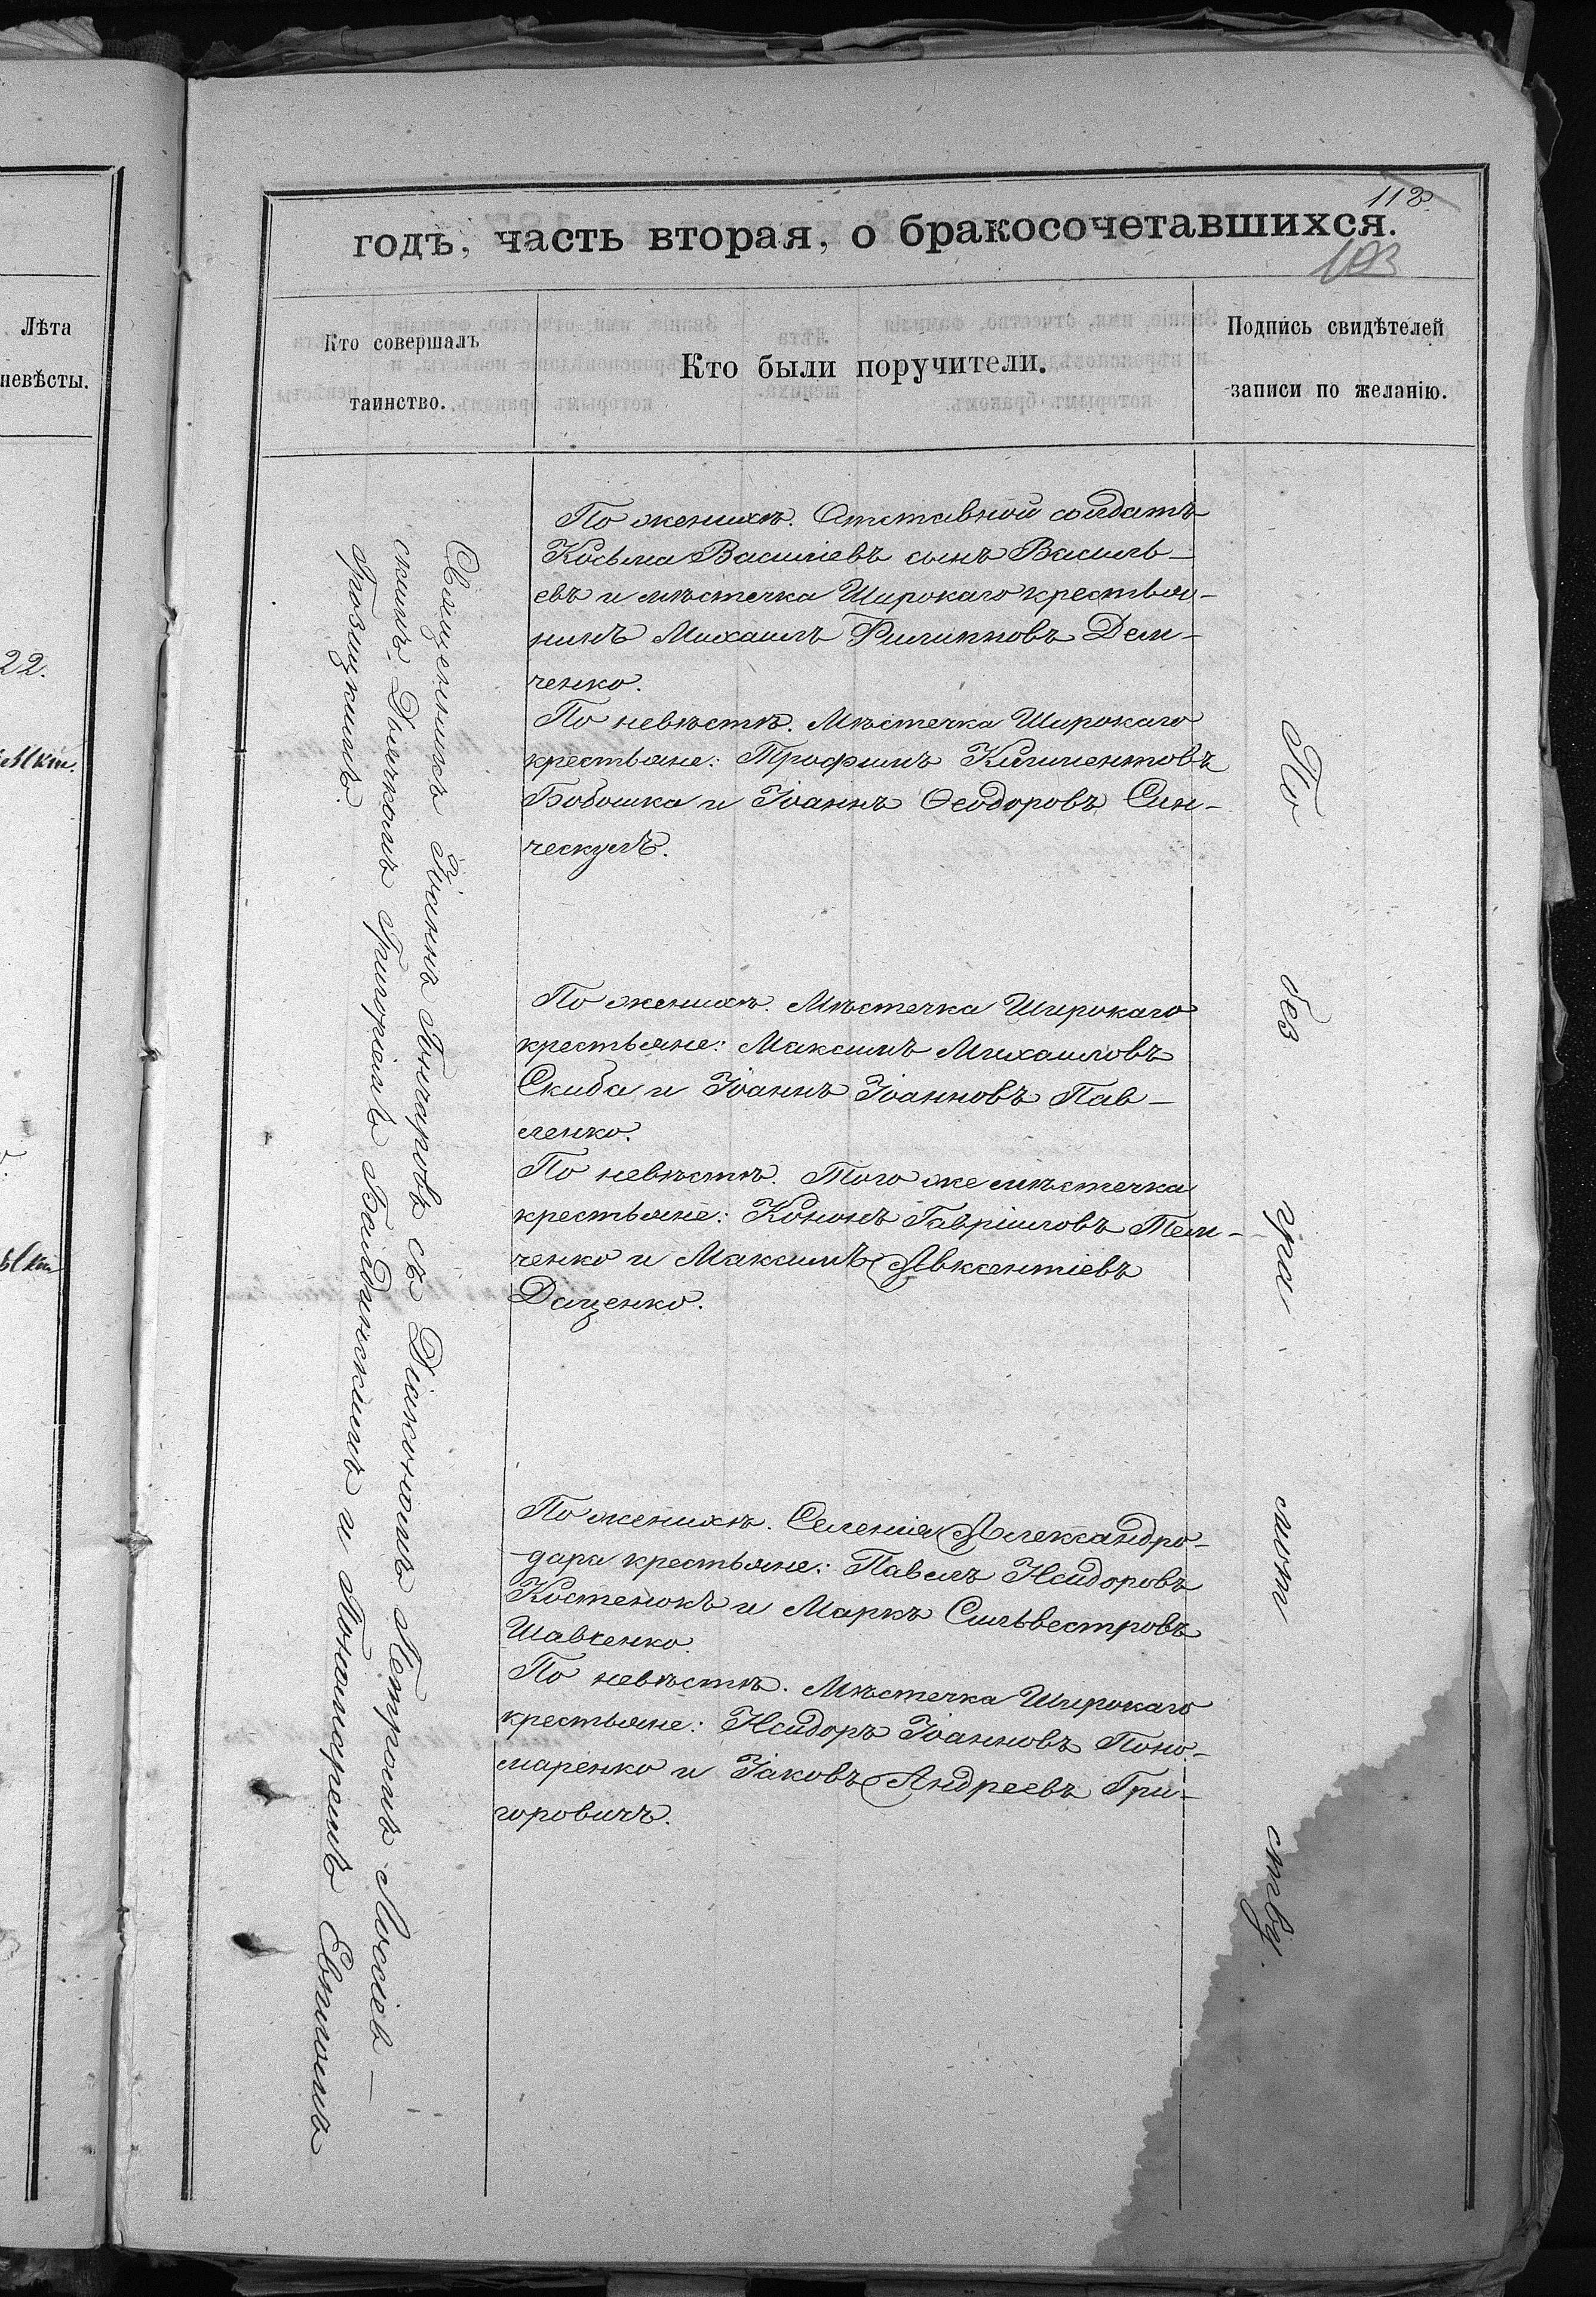 Лѣта
невѣсты.
22.
112
годъ, часть вторая, о бракосочетавшихся.
103
Кто совершалъ
таинство.
Кто были поручители.
Подпись свидѣтелей
записи по желанію.
Священникъ Іоаннъ Гончаровъ съ Діакономъ Петромъ Моссіев-
скимъ, Дьячкомъ Григоріемъ Бѣлинскимъ и Пономаремъ Евгеніемъ
Грозицкимъ.
По женихѣ. Отставной солдатъ
Косьма Василіевъ сынъ Василь-
евъ и мѣстечка Широкаго крестья-
нинъ Михаилъ Филипповъ Дем-
ченко.
По невѣстѣ. Мѣстечка Широкаго
крестьяне: Трофимъ Климентовъ
Бобошка и Іоаннъ Ѳеодоровъ Син-
ческулъ.
По женихѣ. Мѣстечка Широкаго
крестьяне: Максимъ Михаиловъ
Скиба и Іоаннъ Іоанновъ Пав-
ленко.
По невѣстѣ. Того же мѣстечка
крестьяне: Кононъ Гавріиловъ Тем-
ченко и Максимъ Авксентіевъ
Даценко.
По женихѣ. Селенія Александро-
дара крестьяне: Павелъ Исидоровъ
Костенокъ и Маркъ Сильвестровъ
Шавченко.
По невѣстѣ. Мѣстечка Широкаго
крестьяне: Исидоръ Іоанновъ Поно-
маренко и Іаковъ Андреевъ Гри-
горовичъ.
По без гра мот ству.